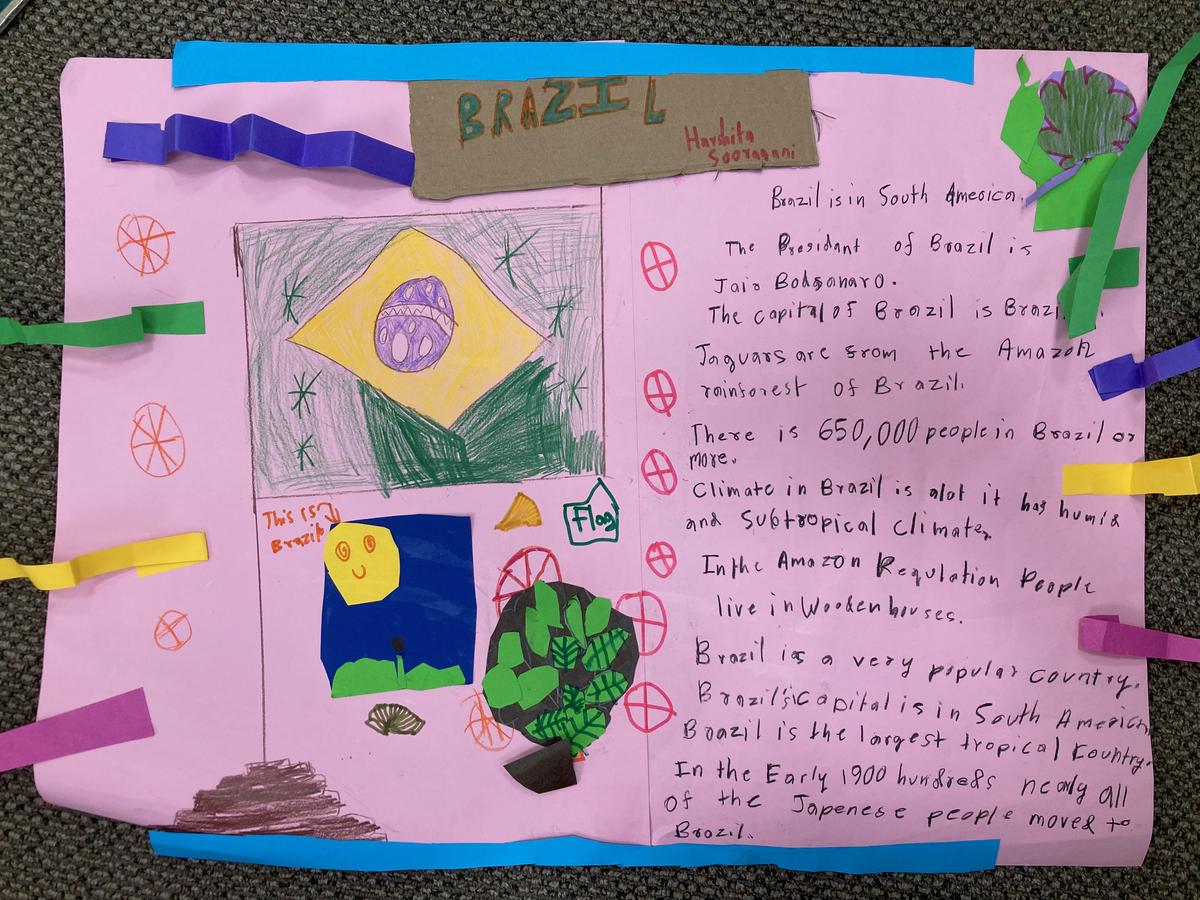 BRAZIL
Harshita
Sooragani
Brazil is in South America.
The Presidant of Brazil is
Jair Bolsonaro.
The capital of Brazil is
Jaguars are from the Amazon
rainforest of Brazil.
There is 650,000 people in Brazil or
more.
Climate in Brazil is alot it has humid
and Subtropical climate.
In the Amazon Regulation People
live in Wooden houses.
Brazil is a very popular country.
Brazil's capital is in South America
Brazil is the largest tropical country.
In the Early 1900 hundreds nearly all
of the Japenese people moved to
Brazil.
This is
Brazil
Flag